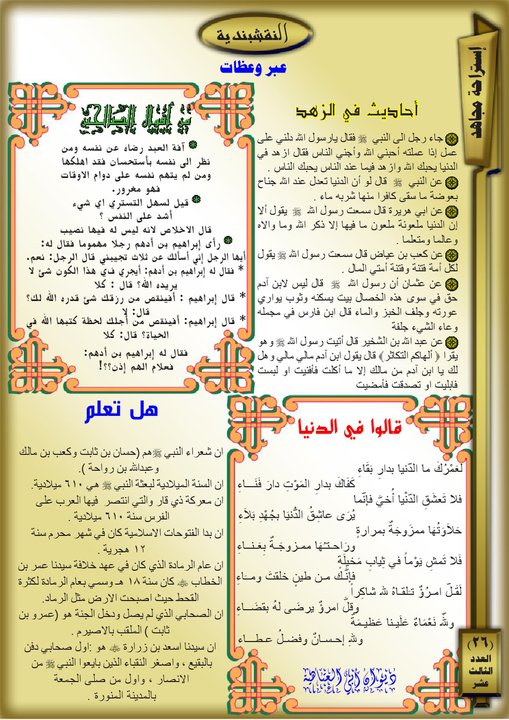 النقشبندية
إستراحة مجاهد
عبر وعظات
أحاديث في الزهد
جاء رجل الى النبي ﷺ فقال يارسول الله دلني على
عمل إذا عملته أحبني الله وأجني الناس فقال ازهد في
الدنيا يحبك الله وازهد فيما عند الناس يحبك الناس .
عن النبي ﷺ قال لو أن الدنيا تعدل عند الله جناح
بعوضة ما سقى كافرا منها شربه ماء .
عن ابي هريرة قال سمعت رسول الله ﷺ يقول ألا
إن الدنيا ملعونة ملعون ما فيها إلا ذكر الله وما والاه
وعالما ومتعلما .
عن كعب بن عياض قال سمعت رسول الله ﷺ يقول
لكل أمة فتنة وفتنة أمتي المال .
عن عثمان أن رسول الله ﷺ قال ليس لابن آدم
حق في سوى هذه الخصال بيت يسكنه وثوب يواري
عورته وجلف الخبز والماء قال ابن فارس في مجمله
وعاء الشيء جلفة
عن عبد الله بن الشخير قال أتيت رسول الله ﷺ وهو
يقرا ( ألهاكم التكاثر) قال يقول ابن آدم مالي مالي وهل
لك يا ابن آدم من مالك إلا ما أكلت فأفنيت او لبست
فابليت او تصدقت فأمضيت
من أقوال الصالحين
آفة العبد رضاء عن نفسه ومن
نظر الى نفسه بأستحسان فقد اهلكها
ومن لم يتهم نفسه على دوام الاوقات
فهو مغرور.
قيل لسهل التستري اي شيء
أشد على النفس ؟
قال الاخلاص لانه ليس له فيها نصيب
رأى إبراهيم بن أدهم رجلا مهموما فقال له:
أيها الرجل إني أسألك عن ثلاث تجيبني قال الرجل: نعم.
* فقال له إبراهيم بن أدهم: أيجري في هذا الكون شئ لا
يريده الله؟ قال : كلا
* قال إبراهيم : أفينقص من رزقك شئ قدره الله لك؟
قال: لا
* قال إبراهيم: أفينقص من أجلك لحظة كتبها الله في
الحياة؟ قال: كلا
فقال له إبراهيم بن أدهم:
فعلام الهم إذن؟؟!
قالوا في الدنيا
لَعَمْرُكَ ما الدّنيا بدارِ بَقَاءِ
كَفَاكَ بدارِ المَوْتِ دارَ فَنَاءِ
فلا تَعشَقِ الدّنْيا أُخيَّ فإنّما
يُرَى عاشِقُ الدُّنيَا بجُهْدِ بَلاَءِ
حَلاَوَتُهَا ممزَوجَةٌ بمرارةٍ
ورَاحتُهَا ممزوجَةٌ بِعَناءِ
فَلا تَمشِ يَوْماً في ثِيابِ مَخيلَةٍ
فإنَّكَ من طينٍ خلقتَ ومَاءِ
لَقَلّ امرُؤٌ تَلقاهُ لله شاكِراً
وقلَّ امرؤٌ يرضَى لهُ بقضَاءِ
وللّهِ نَعْمَاءٌ عَلَينا عَظيمَةٌ
وللهِ إحسانٌ وفضلُ عطاءِ
ديوان أبي العتاهية
هل تعلم
ان شعراء النبي ﷺ هم (حسان بن ثابت وكعب بن مالك
وعبدالله بن رواحة ) .
ان السنة الميلادية لبعثة النبي ﷺ هي ٦١٠ ميلادية.
ان معركة ذي قار والتي انتصر فيها العرب على
الفرس سنة ٦١٠ ميلادية .
ان بدا الفتوحات الاسلامية كان في شهر محرم سنة
١٢ هجرية .
ان عام الرمادة الذي كان في عهد خلافة سيدنا عمر بن
الخطاب كان سنة ١٨ هـ وسمي بعام الرمادة لكثرة
القحط حيث اصبحت الارض مثل الرماد.
ان الصحابي الذي لم يصل ودخل الجنة هو (عمرو بن
ثابت ) الملقب بالاصيرم .
ان سيدنا اسعد بن زرارة هو :اول صحابي دفن
بالبقيع ، واصغر النقباء الذين بايعوا النبي ﷺ من
الانصار ، واول من صلى الجمعة
بالمدينة المنورة .
(٢٦)
العدد
الثالث
عشر